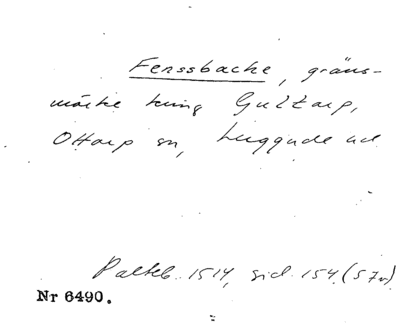 Fenssbacke, gräns-
märke kring Gultarp,
Ottarp sn, Luggude hd
Palteb. 1514, sid. 154 (57v)
Nr 6490.